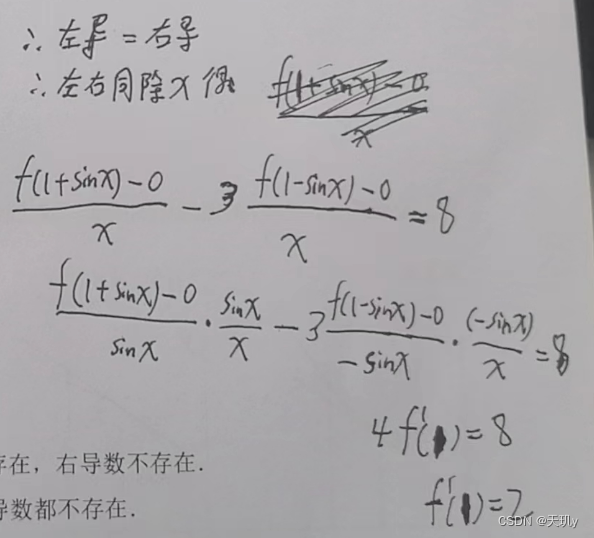 ∴ 左导 = 右导
∴ 左右同除 x 得
f(1+sinx)-0 / x - 3 f(1-sinx)-0 / x = 8
f(1+sinx)-0 / sinx · sinx / x - 3 f(1-sinx)-0 / -sinx · (-sinx) / x = 8
4f'(1) = 8
存在，右导数不存在.
f'(1) = 2
导数都不存在.
CSDN @天玑y